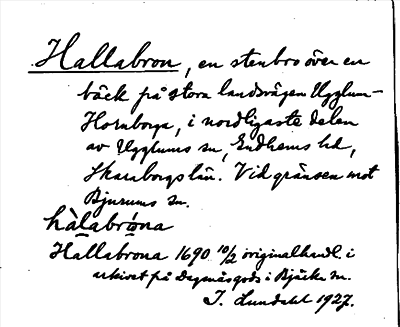 Hallabron, en stenbro över en
bäck på stora landsvägen Ugglum-
Hornborga, i nordligaste delen
av Ugglums sn, Gudhems hd,
Skaraborgs län. Vid gränsen mot
Bjurums sn.
hàlabróna
Hallabrona 1690 10/2 originalhandl. i
arkivet på Dagsnäs gods i Bjärka sn.
J. Lundahl 1927.